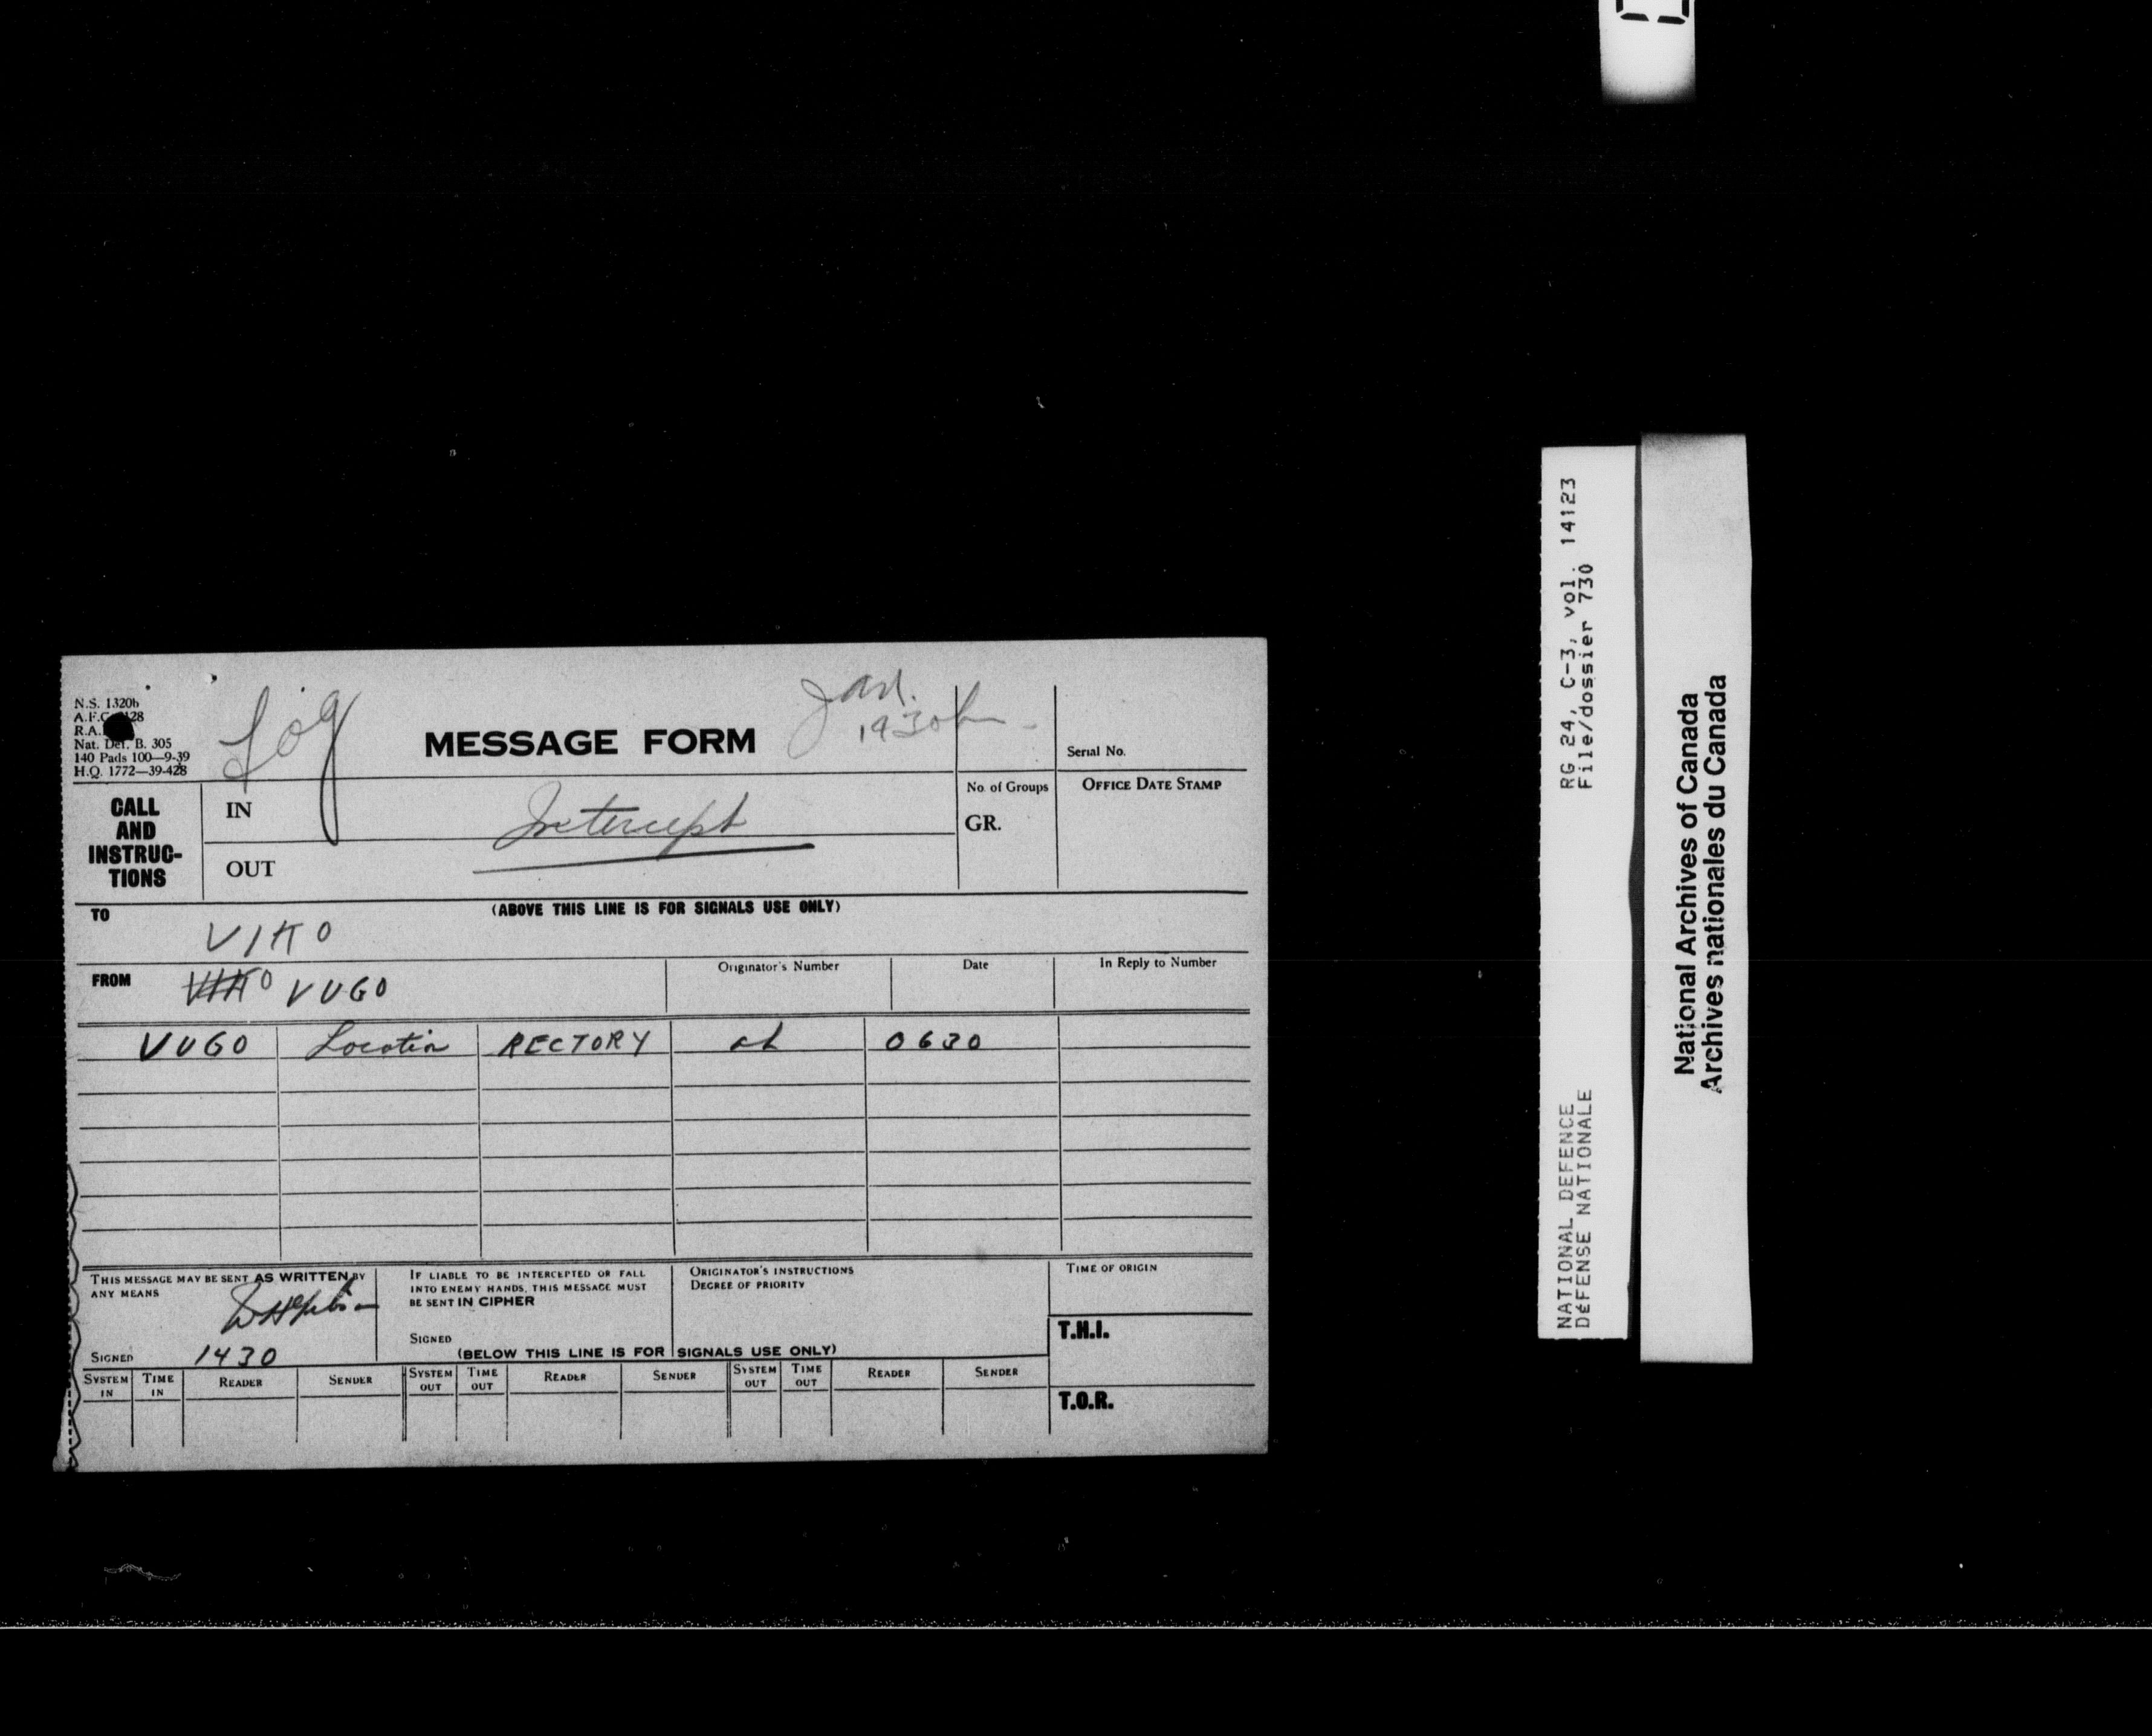 N.S. 1320b
R.A.
Nat. Def. B. 305
140 Pads 100—9-39
H.Q. 1772—39-428
Log
MESSAGE FORM
1930h
Serial No.
CALL AND INSTRUC-TIONS
IN
Intercept
OUT
No. of Groups
GR.
OFFICE DATE STAMP
(ABOVE THIS LINE IS FOR SIGNALS USE ONLY)
TO
VIKO
FROM
VUGO
Originator's Number
Date
In Reply to Number
VUGO Location RECTORY at 0630
THIS MESSAGE MAY BE SENT AS WRITTEN BY
ANY MEANS
SIGNED 1430
IF LIABLE TO BE INTERCEPTED OR FALL
INTO ENEMY HANDS, THIS MESSAGE MUST
BE SENT IN CIPHER
SIGNED
ORIGINATOR'S INSTRUCTIONS
DEGREE OF PRIORITY
TIME OF ORIGIN
T.H.I.
T.O.R.
(BELOW THIS LINE IS FOR SIGNALS USE ONLY)
SYSTEM IN TIME IN READER SENDER SYSTEM OUT TIME OUT READER SENDER SYSTEM OUT TIME OUT READER SENDER
RG 24, C-3, vol. 14123
File/dossier 730
NATIONAL DEFENCE
DéFENSE NATIONALE
National Archives of Canada
Archives nationales du Canada